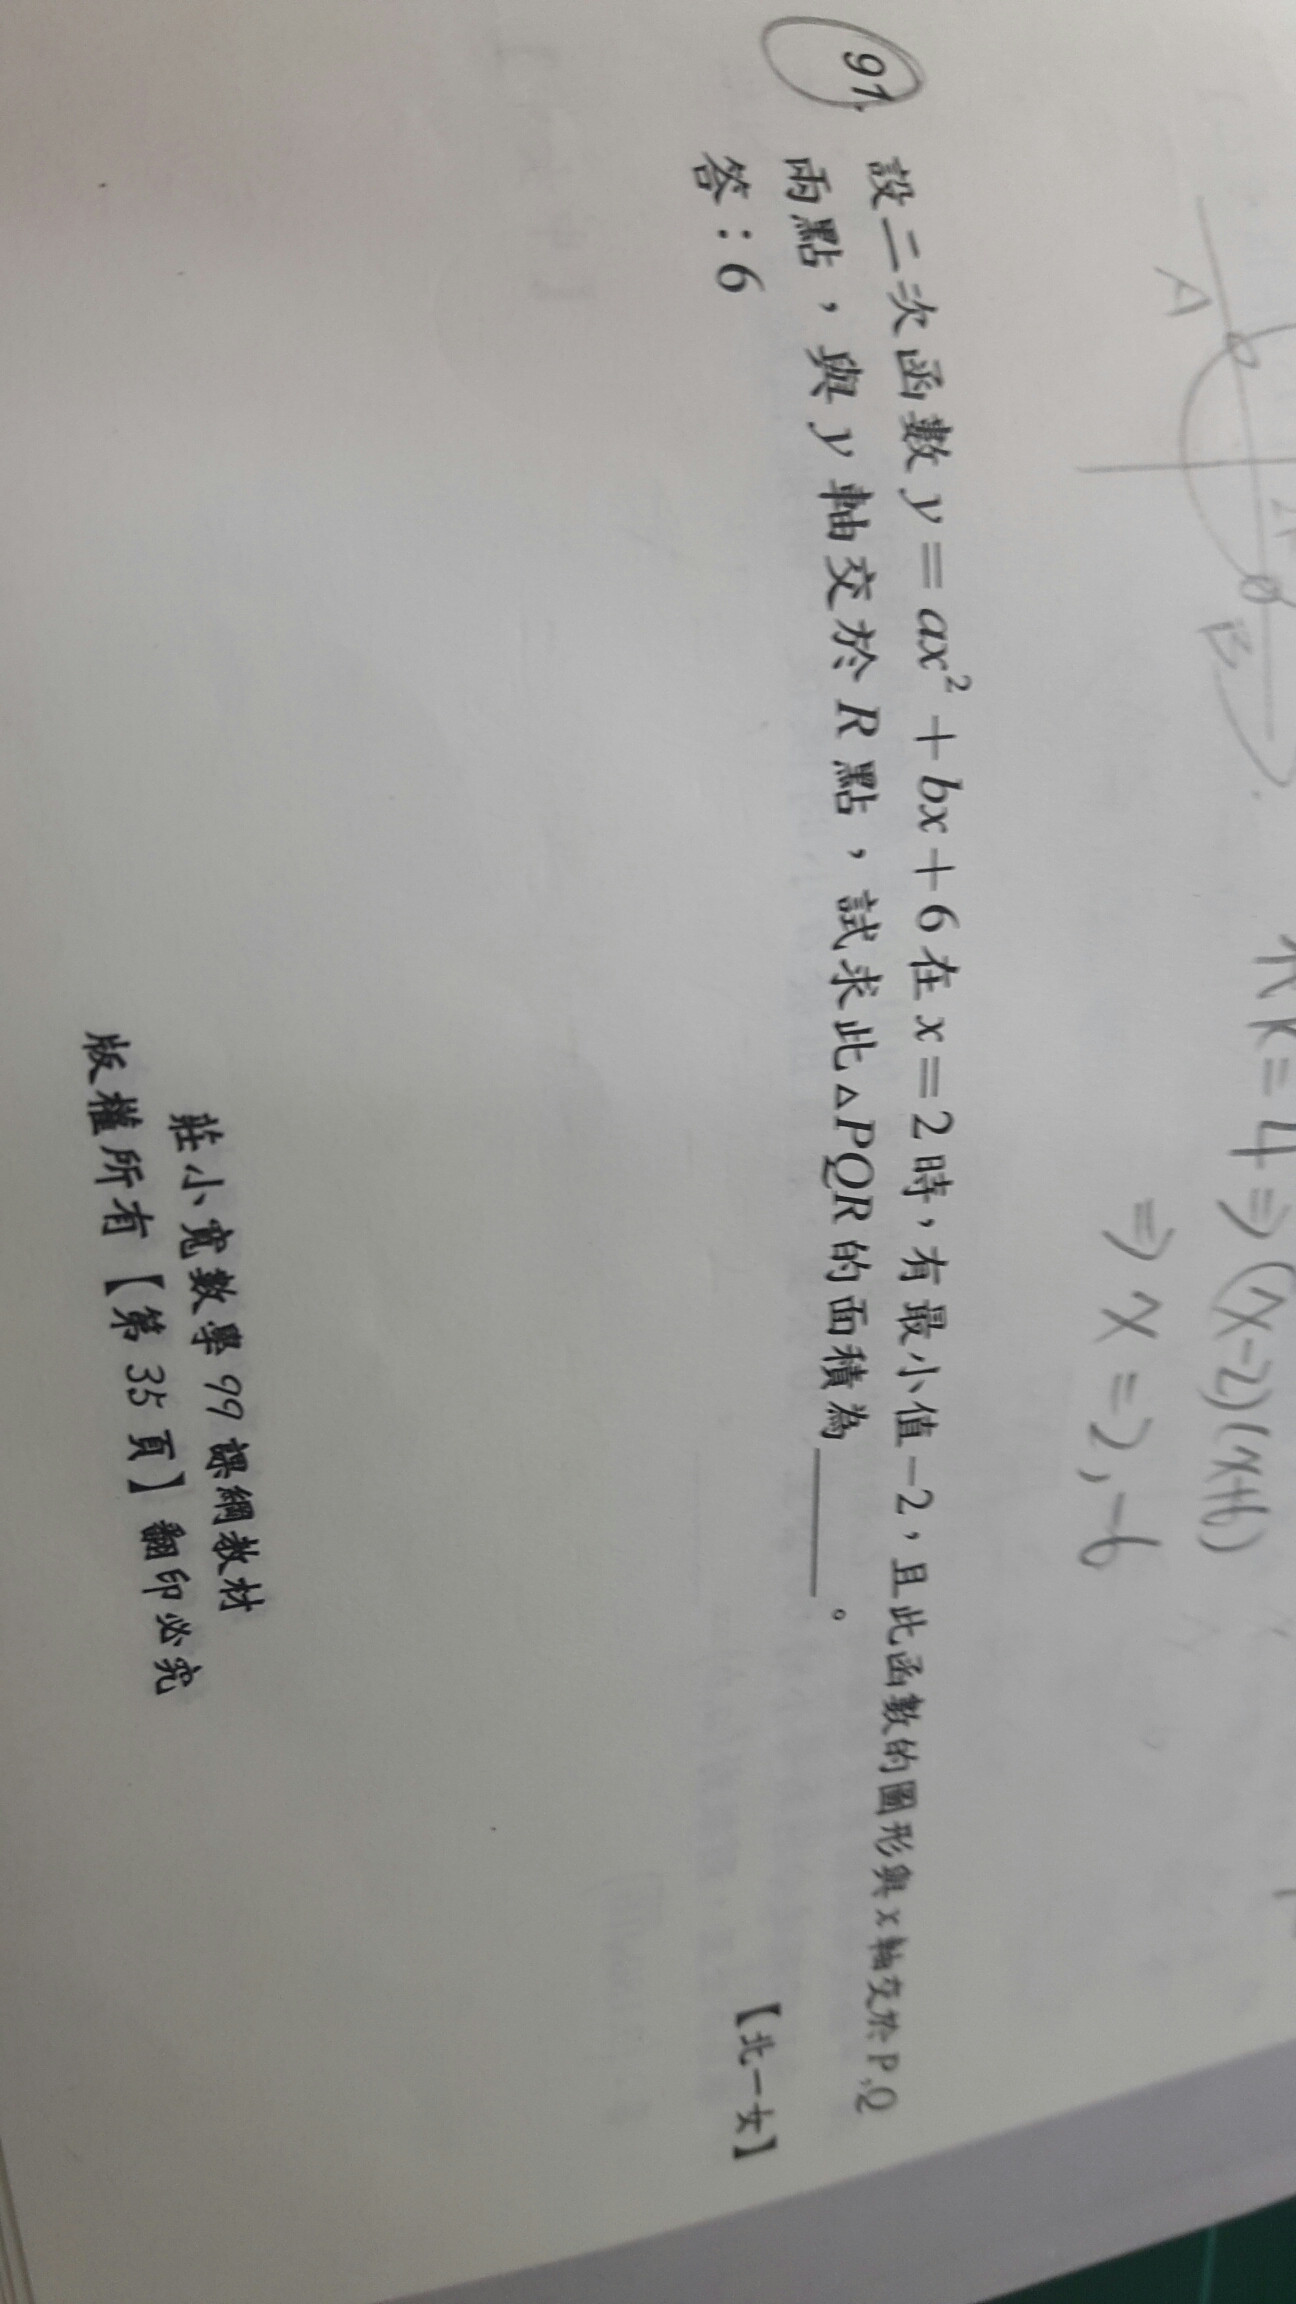 代 k=4 ⇒ (x-2)(x+6)
⇒ x=2,-6
A
B
91. 設二次函數 y=ax²+bx+6 在 x=2 時，有最小值-2，且此函數的圖形與 x 軸交於 P,Q
兩點，與 y 軸交於 R 點，試求此△PQR 的面積為______。
【北一女】
答：6
莊小寬數學 99 課綱教材
版權所有【第 35 頁】翻印必究